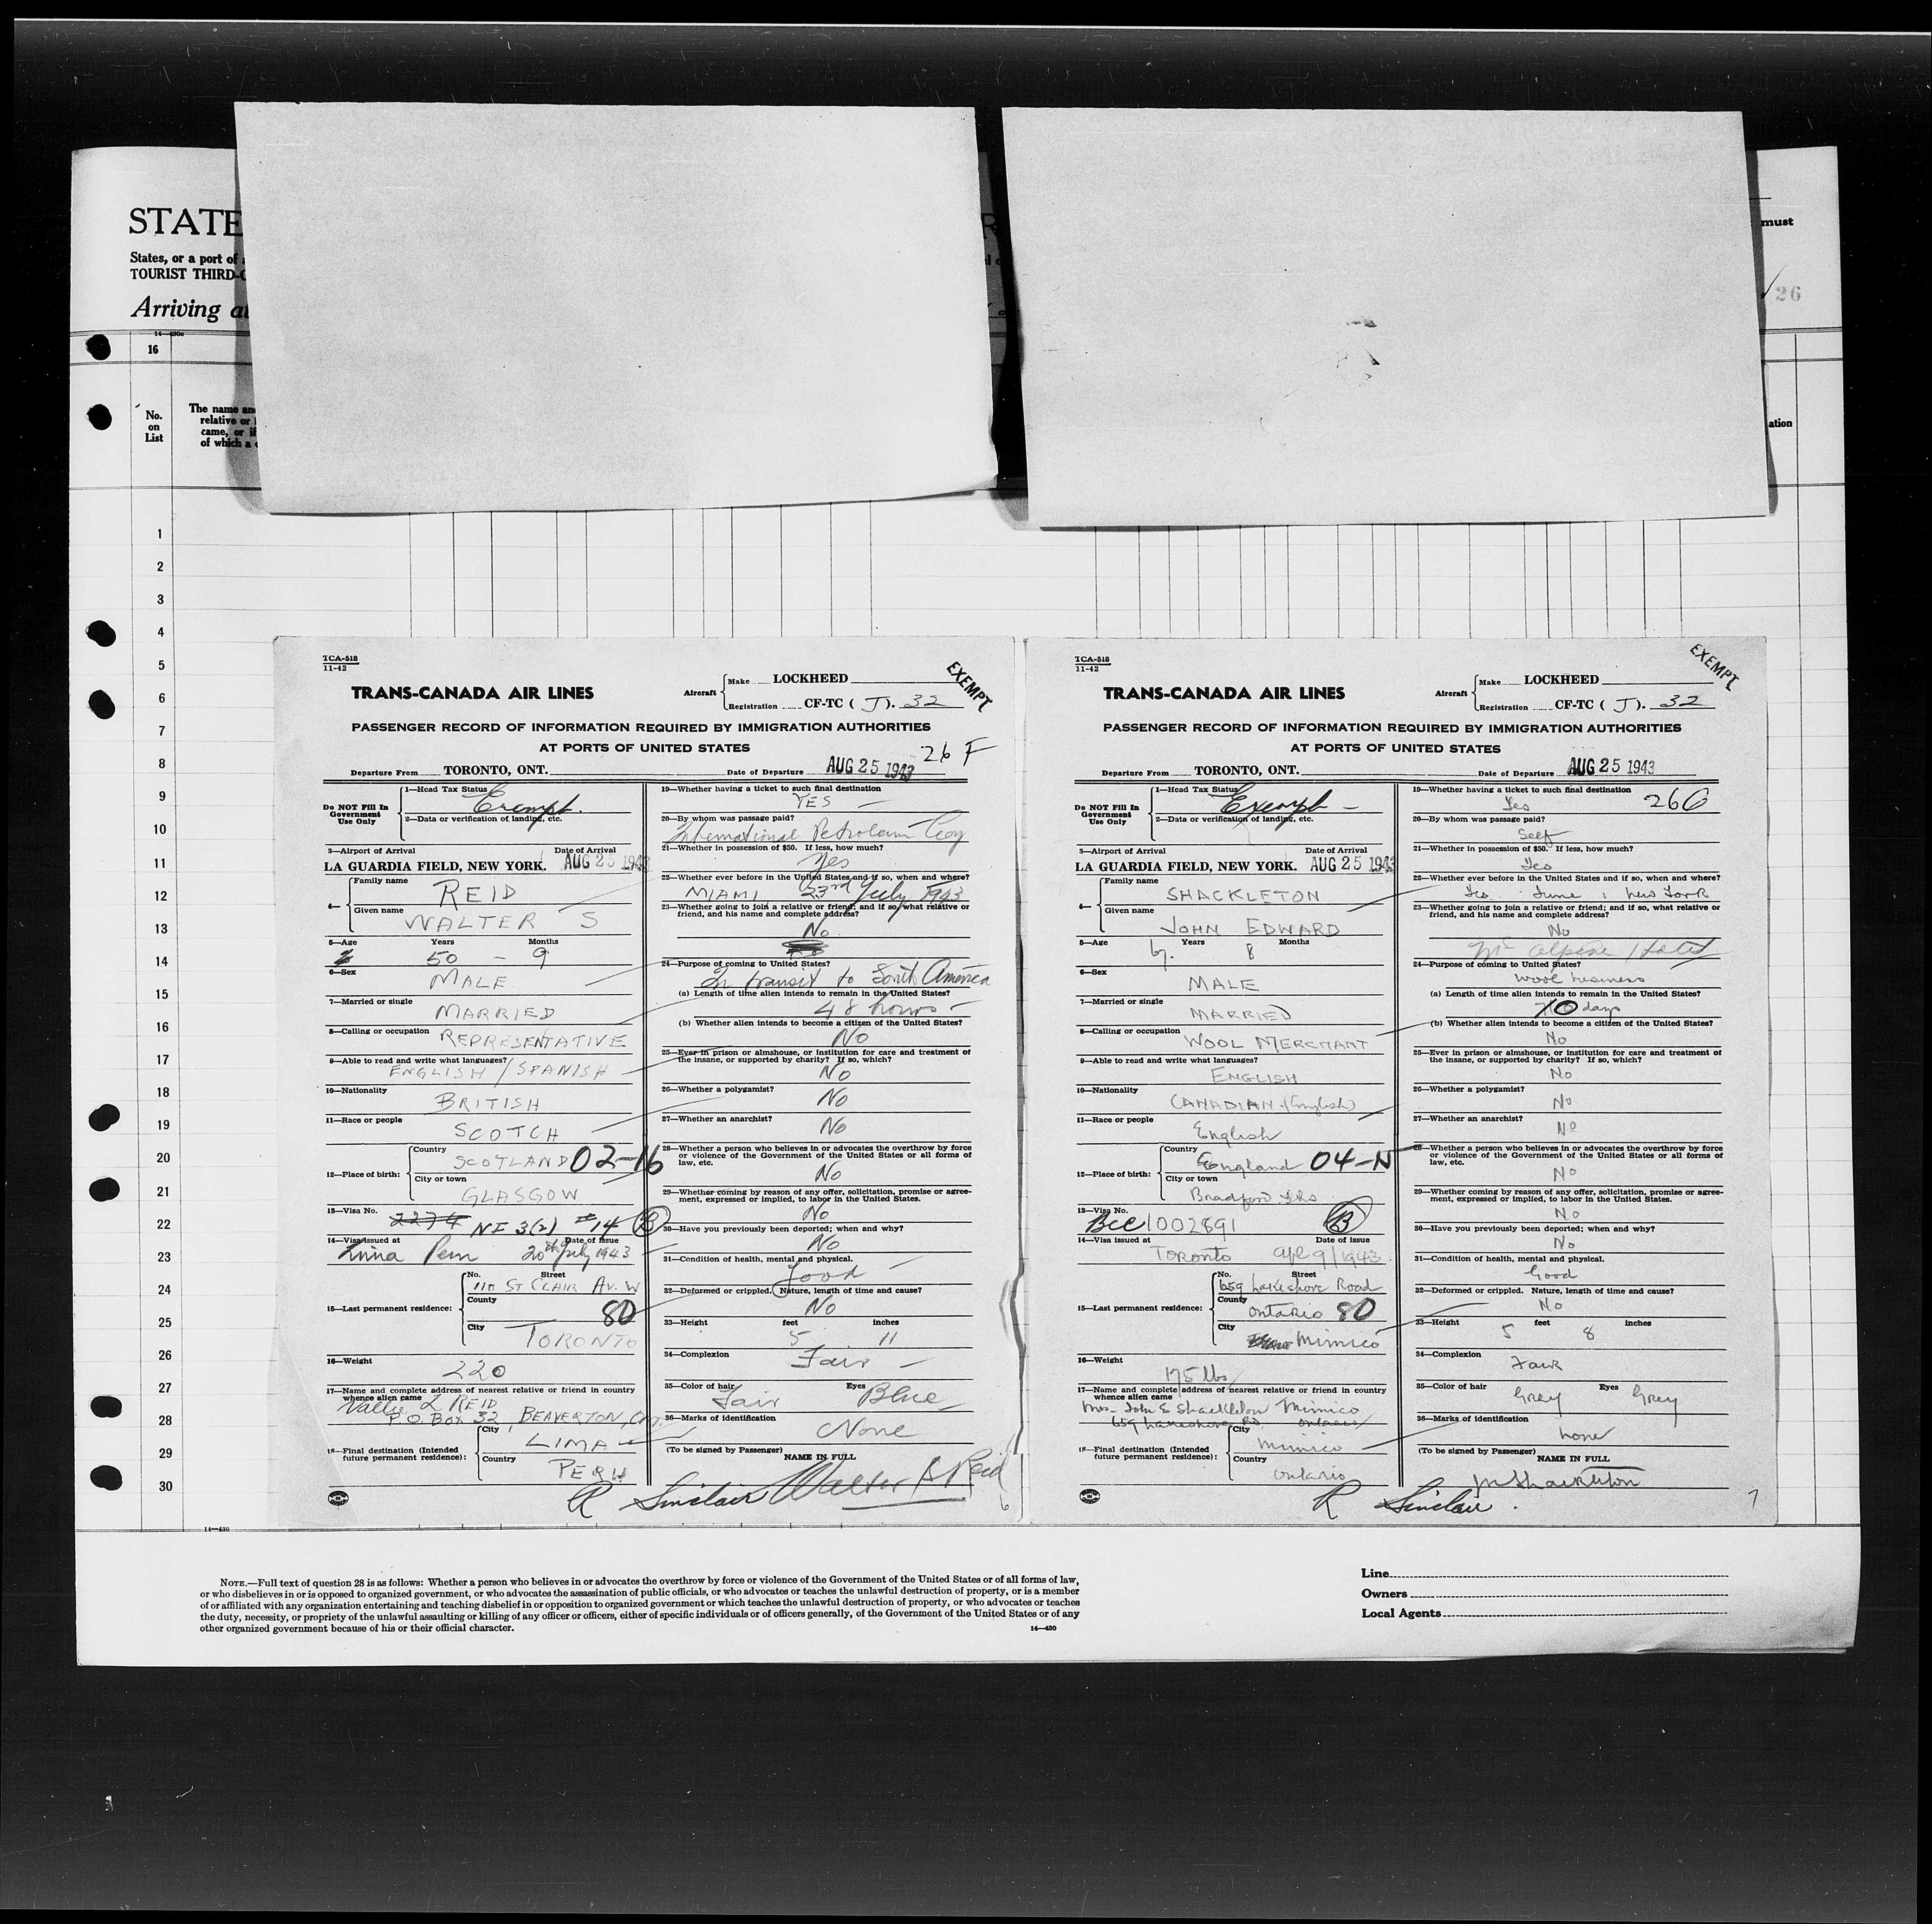 STATE
must
States, or a port of
TOURIST THIRD-C
Arriving at
26
14—430a
16
No.
on
List
The name and
relative or
came, or if
of which a
ation
1
2
3
4
5
6
7
8
9
10
11
12
13
14
15
16
17
18
19
20
21
22
23
24
25
26
27
28
29
30
TCA-518
11-42
TRANS-CANADA AIR LINES
Aircraft
Make LOCKHEED
Registration CF-TC ( J ). 32
EXEMPT
PASSENGER RECORD OF INFORMATION REQUIRED BY IMMIGRATION AUTHORITIES
AT PORTS OF UNITED STATES
26 F
Departure From TORONTO, ONT.
Date of Departure AUG 25 1943
Do NOT Fill In Government Use Only
1—Head Tax Status Exempt.
2—Data or verification of landing, etc.
3—Airport of Arrival Date of Arrival
LA GUARDIA FIELD, NEW YORK. AUG 25 1943
4— Family name REID
Given name WALTER S
5—Age Years Months
50 — 9
6—Sex
MALE
7—Married or single
MARRIED
8—Calling or occupation
REPRESENTATIVE
9—Able to read and write what languages?
ENGLISH / SPANISH
10—Nationality
BRITISH
11—Race or people
SCOTCH
12—Place of birth:
Country
SCOTLAND 02-16
City or town
GLASGOW
13—Visa No.
2274 NI 3(2) #14 B
14—Visa issued at Date of issue
Lima Peru 20th July 1943
15—Last permanent residence:
No. Street
110 ST CLAIR AV. W
County
80
City
TORONTO
16—Weight
220
17—Name and complete address of nearest relative or friend in country
whence alien came
L REID
P.O. BOX 32, BEAVERTON, ONT.
18—Final destination (Intended
future permanent residence):
City
LIMA
Country
PERU
19—Whether having a ticket to such final destination
YES
20—By whom was passage paid?
International Petroleum Coy
21—Whether in possession of $50. If less, how much?
Yes
22—Whether ever before in the United States and if so, when and where?
MIAMI 23rd July 1943
23—Whether going to join a relative or friend; and if so, what relative or
friend, and his name and complete address?
No.
24—Purpose of coming to United States?
In transit to South America
(a) Length of time alien intends to remain in the United States?
48 hours
(b) Whether alien intends to become a citizen of the United States?
No
25—Ever in prison or almshouse, or institution for care and treatment of
the insane, or supported by charity? If so, which?
No
26—Whether a polygamist?
No
27—Whether an anarchist?
No
28—Whether a person who believes in or advocates the overthrow by force
or violence of the Government of the United States or all forms of
law, etc.
No
29—Whether coming by reason of any offer, solicitation, promise or agree-
ment, expressed or implied, to labor in the United States.
No
30—Have you previously been deported; when and why?
No
31—Condition of health, mental and physical.
Good
32—Deformed or crippled. Nature, length of time and cause?
No
33—Height feet inches
5 11
34—Complexion
Fair
35—Color of hair Eyes
Fair Blue
36—Marks of identification
None
(To be signed by Passenger) NAME IN FULL
R Sinclair Walter S Reid
6
TCA-518
11-42
TRANS-CANADA AIR LINES
Aircraft
Make LOCKHEED
Registration CF-TC ( J ). 32
EXEMPT
PASSENGER RECORD OF INFORMATION REQUIRED BY IMMIGRATION AUTHORITIES
AT PORTS OF UNITED STATES
Departure From TORONTO, ONT.
Date of Departure AUG 25 1943
Do NOT Fill In Government Use Only
1—Head Tax Status Exempt —
2—Data or verification of landing, etc.
3—Airport of Arrival Date of Arrival
LA GUARDIA FIELD, NEW YORK. AUG 25 1943
4— Family name SHACKLETON
Given name JOHN EDWARD
5—Age Years Months
8
6—Sex
MALE
7—Married or single
MARRIED
8—Calling or occupation
WOOL MERCHANT
9—Able to read and write what languages?
ENGLISH
10—Nationality
CANADIAN (English)
11—Race or people
English
12—Place of birth:
Country
England 04-N
City or town
Bradford Yks
13—Visa No.
Bcc 1002891 B
14—Visa issued at Date of issue
Toronto Apl 9/1943
15—Last permanent residence:
No. Street
659 Lakeshore Road
County
Ontario 80
City
Mimico
16—Weight
175 lbs
17—Name and complete address of nearest relative or friend in country
whence alien came
Mrs. John E Shackleton Mimico
659 Lakeshore Rd Ontario
18—Final destination (Intended
future permanent residence):
City
Mimico
Country
Ontario
19—Whether having a ticket to such final destination
Yes 26G
20—By whom was passage paid?
Self
21—Whether in possession of $50. If less, how much?
Yes
22—Whether ever before in the United States and if so, when and where?
Yes June, New York
23—Whether going to join a relative or friend; and if so, what relative or
friend, and his name and complete address?
No
McAlpine Hotel
24—Purpose of coming to United States?
Wool business
(a) Length of time alien intends to remain in the United States?
10 days
(b) Whether alien intends to become a citizen of the United States?
No
25—Ever in prison or almshouse, or institution for care and treatment of
the insane, or supported by charity? If so, which?
No
26—Whether a polygamist?
No
27—Whether an anarchist?
No
28—Whether a person who believes in or advocates the overthrow by force
or violence of the Government of the United States or all forms of
law, etc.
No
29—Whether coming by reason of any offer, solicitation, promise or agree-
ment, expressed or implied, to labor in the United States.
No
30—Have you previously been deported; when and why?
No
31—Condition of health, mental and physical.
Good
32—Deformed or crippled. Nature, length of time and cause?
No
33—Height feet inches
5 8
34—Complexion
Fair
35—Color of hair Eyes
Grey Grey
36—Marks of identification
None
(To be signed by Passenger) NAME IN FULL
R Sinclair. Shackleton
7
14—430
NOTE.—Full text of question 28 is as follows: Whether a person who believes in or advocates the overthrow by force or violence of the Government of the United States or of all forms of law,
or who disbelieves in or is opposed to organized government, or who advocates the assassination of public officials, or who advocates or teaches the unlawful destruction of property, or is a member
of or affiliated with any organization entertaining and teaching disbelief in or opposition to organized government or which teaches the unlawful destruction of property, or who advocates or teaches
the duty, necessity, or propriety of the unlawful assaulting or killing of any officer or officers, either of specific individuals or of officers generally, of the Government of the United States or of any
other organized government because of his or their official character.
14—430
Line
Owners
Local Agents